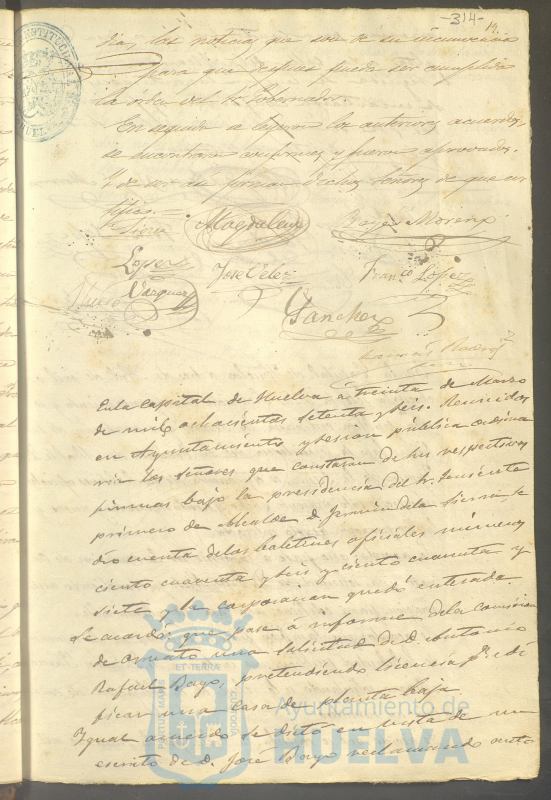 -314-
dias, las noticias que son de su
para que despues pueda ser cumplida
la orden del Sr. Gobernador.
En seguida se leyeron los anteriores acuerdos,
se encontraron conformes y fueron aprobados.
Y de ser asi firman dichos Señores de que cer
tifico.
Sierra Magdalena Bayo Moreno
Lopez Jose Velez Franco Lopez
Vazquez
Sanchez
En la capital de Huelva á treinta de Marzo
de mil ochocientos setenta y seis. Reunidos
en Ayuntamiento y sesion pública ordina
ria los Señores que constaran de sus respectivas
firmas bajo la presidencia del Sr. Teniente
primero de Alcalde D. Fermin de la Sierra, se
dió cuenta de los boletines oficiales números
ciento cuarenta y seis y ciento cuarenta y
siete y la corporacion quedó enterada.
Se acordó: que pase á informe de la comision
de ornato una solicitud de D. Antonio
Rafael Bayo, pretendiendo licencia pa. edi
ficar una casa de planta baja.
Igual acuerdo se dictó en vista de un
escrito de D. José Bayo reclamando
PORTUS MARIS
ET TERRÆ
CUSTODIA
Ayuntamiento de
HUELVA